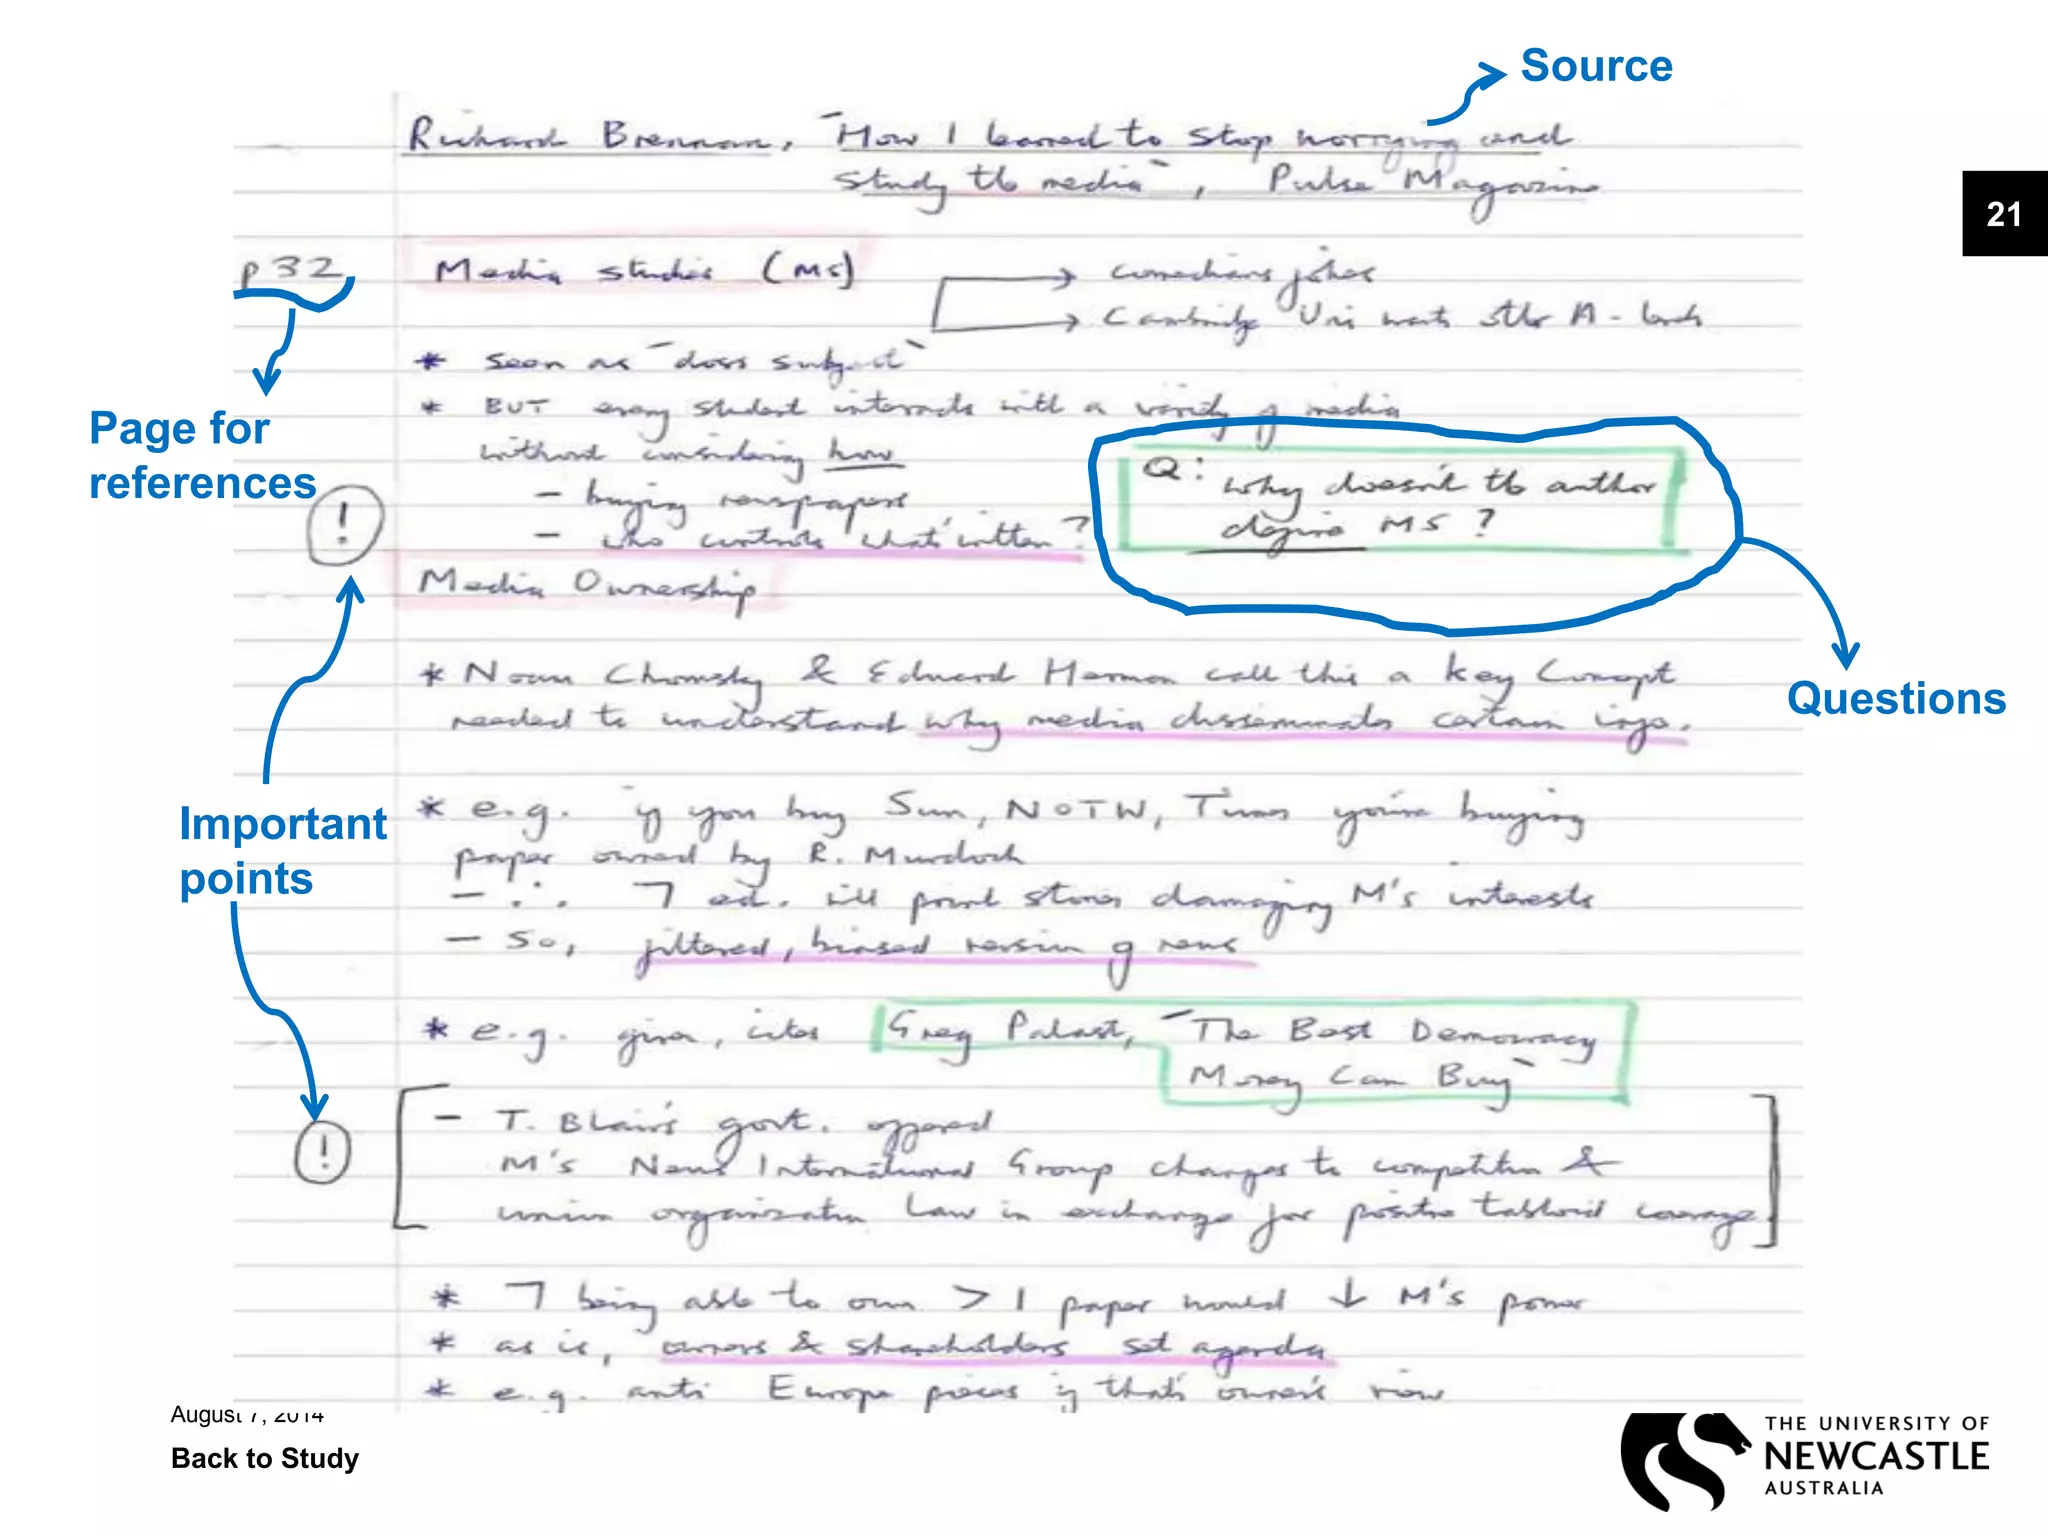 Source
Richard Brennan, "How I learned to stop worrying and
study the media", Pulse Magazine
21
p32 Media studies (MS)
comedians jokes
Cambridge Uni wants other A-levels
* seen as "doss subject"
* BUT every student interacts with a variety of media
without considering how
- buying newspapers
- who controls what's written?
Page for
references
!
Q: why doesn't the author
define MS?
Media Ownership
Questions
* Noam Chomsky & Edward Herman call this a key concept
needed to understand why media disseminates certain info.
Important
points
* e.g. if you buy Sun, NOTW, Times you're buying
paper owned by R. Murdoch
- ∴ ¬ ed. will print stories damaging M's interests
- so, filtered, biased version of news
* e.g. given, cites Greg Palast, "The Best Democracy
Money Can Buy"
!
- T. Blair's govt. offered
M's News International Group changes to competition &
union organization law in exchange for positive tabloid coverage.
* ¬ being able to own > 1 paper would ↓ M's power
* as is, owners & shareholders set agenda
* e.g. anti Europe pieces if that's owner's view
August 7, 2014
Back to Study
THE UNIVERSITY OF
NEWCASTLE
AUSTRALIA